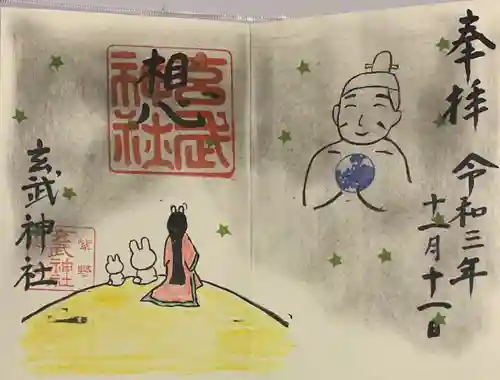 奉拝
令和三年
十一月十一日
想
玄武
神社
玄武神社
紫野
玄武
神社